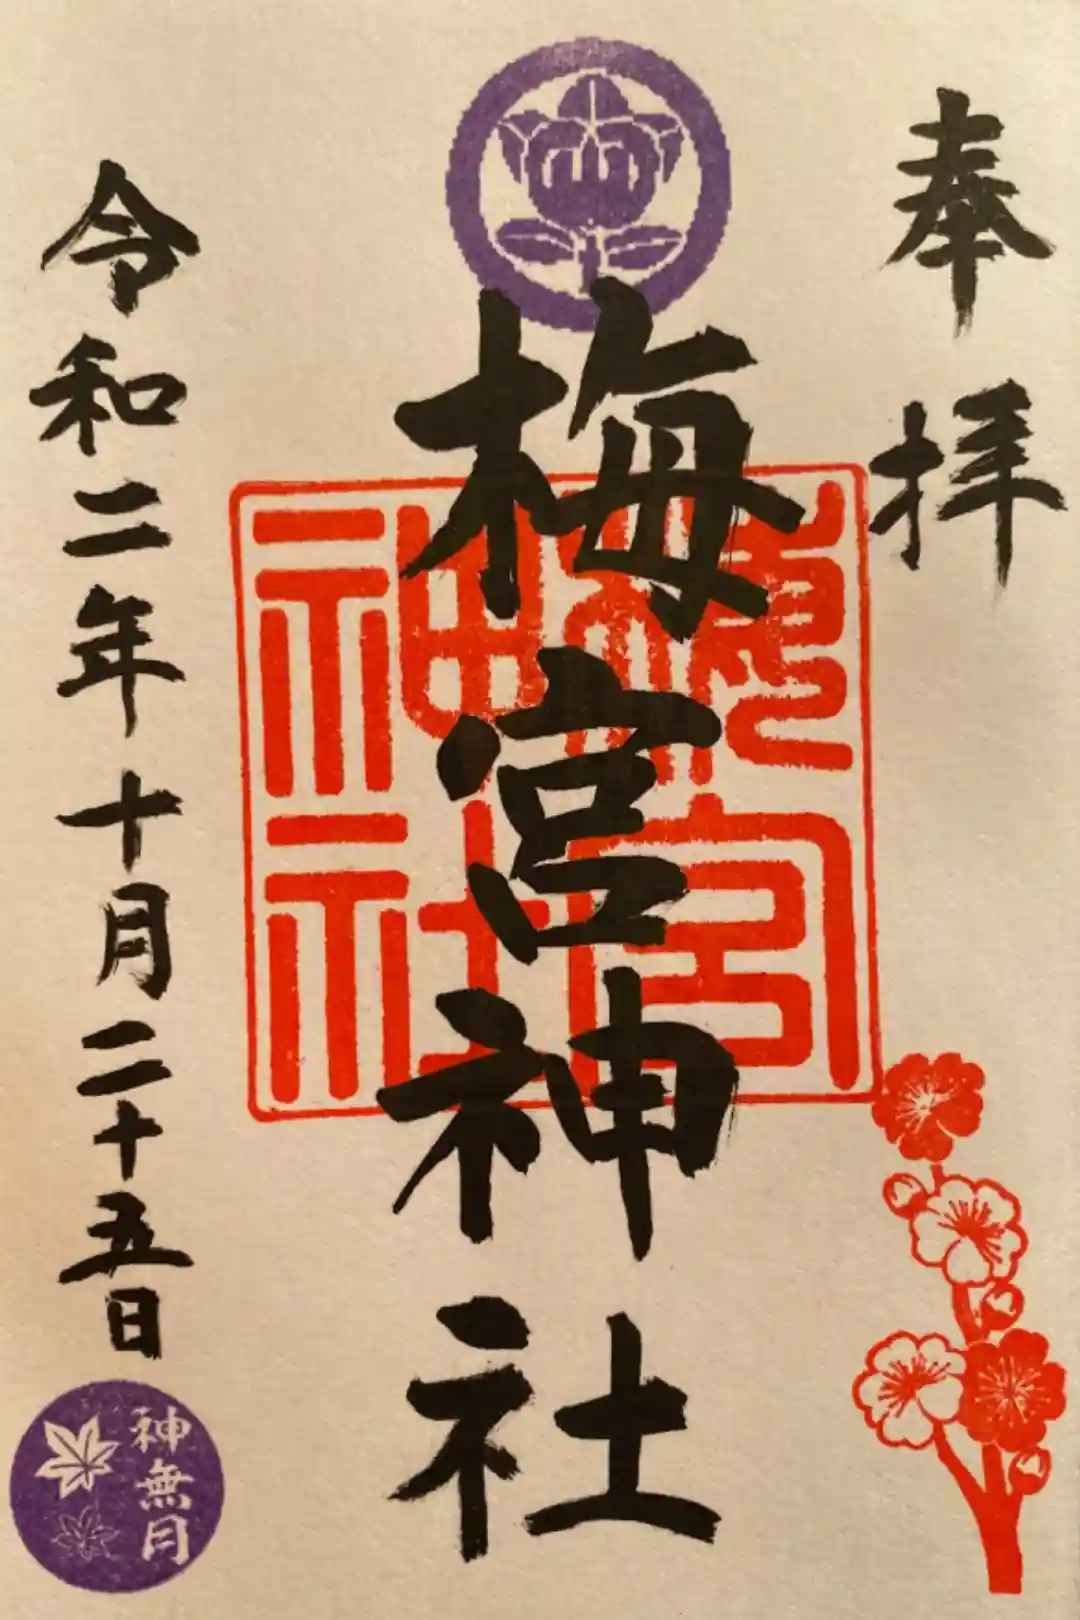 奉拝
梅宮神社
梅宮神社
令和二年十月二十五日
神無月